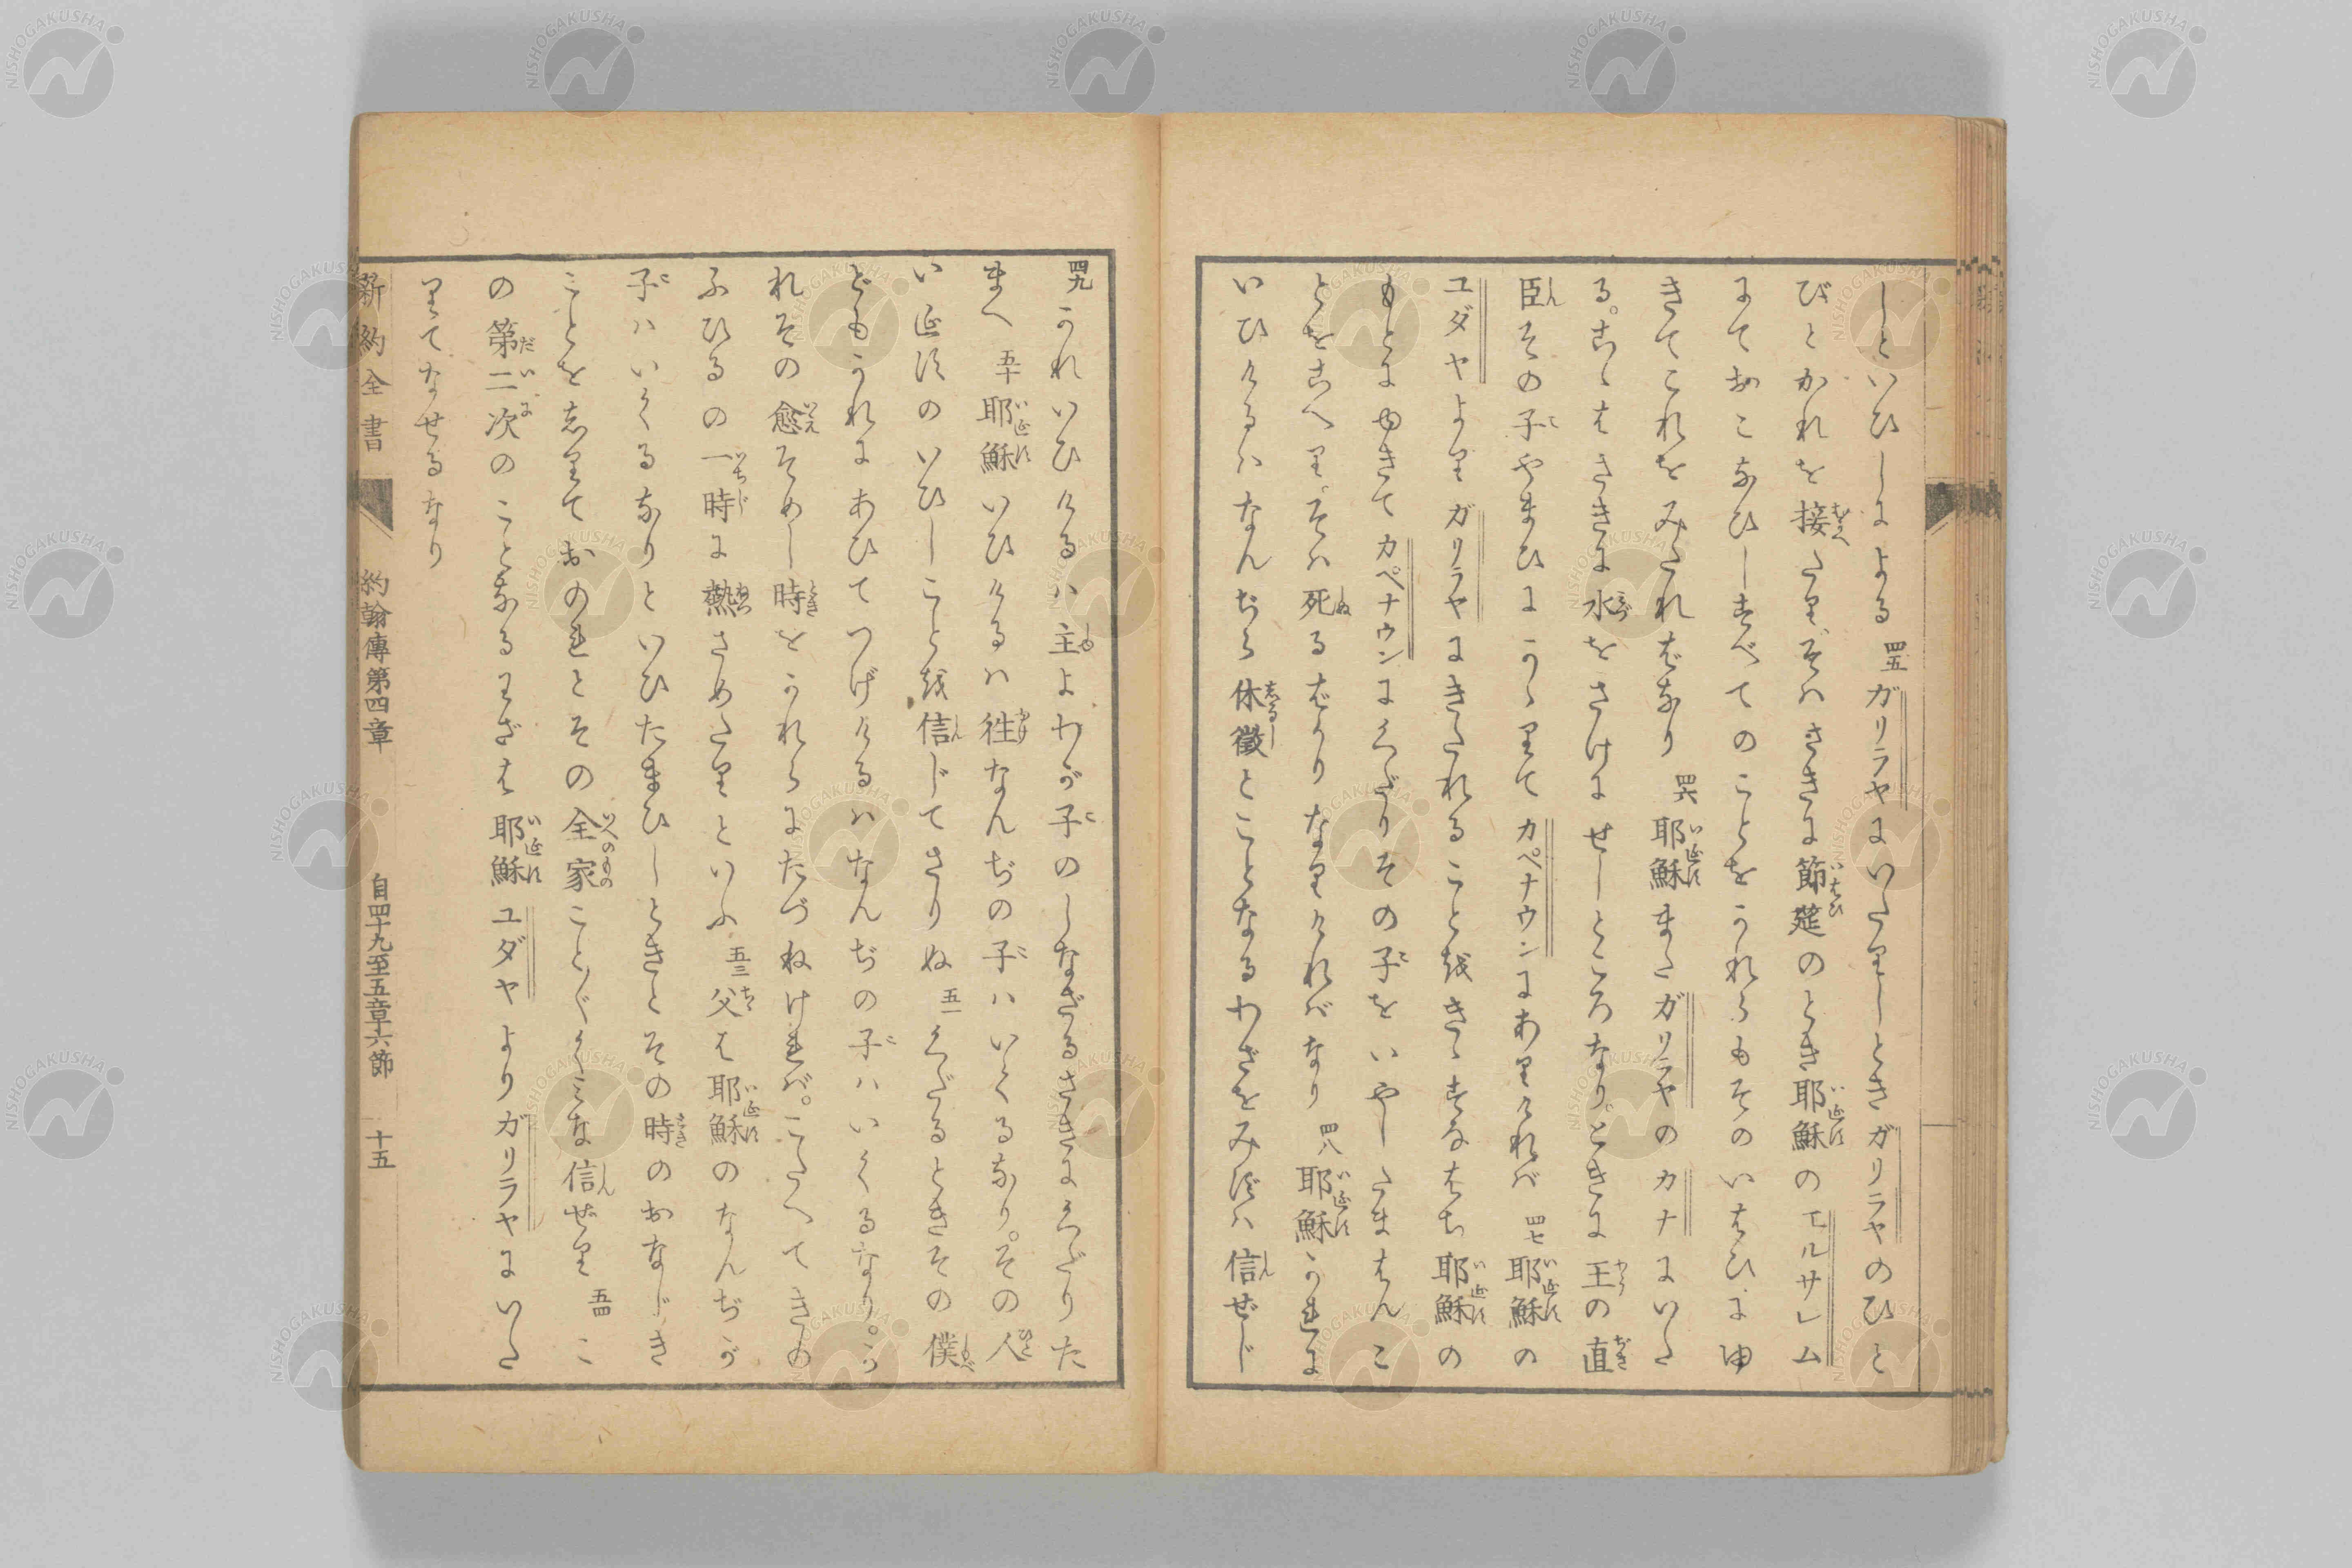 しといひしによる 四五 ガリラヤにいたりしときガリラヤのひと
びとかれを接たり、そハさきに節筵のとき耶穌のエルサレム
にておこなひしすべてのことをかれらもそのいはひにゆ
きてこれをみたればなり 四六 耶穌またガリラヤのカナにいた
る。こゝはさきに水をさけにせしところなり。ときに王の直
臣その子やまひにかゝりてカペナウンにありければ 四七 耶穌の
ユダヤよりガリラヤにきたれることをきゝすなはち耶穌の
もとにゆきてカペナウンにくだりその子をいやしたまはんこ
とをこへり、そハ死るばかりなりければなり 四八 耶穌かれに
いひけるハなんぢら休徴とことなるわざをみずハ信ぜじ
四九 かれいひけるハ主よわが子のしなざるさきにくだりた
まへ 五十 耶穌いひけるハ徃なんぢの子ハいくるなり。その人
い𛀁すのいひしことを信じてさりぬ 五一 くだるときその僕
どもかれにあひてつげけるハなんぢの子ハいくるなり。か
れその愈そめし時をかれらにたづねければ。こたへてきの
ふひるの一時に熱さめたりといふ 五三 父は耶穌のなんぢが
子ハいくるなりといひたまひしときとその時のおなじき
ことをしりておのれとその全家こと〴〵くみな信ぜり 五四 こ
の第二次のことなるわざは耶穌ユダヤよりガリラヤにいた
りてなせるなり
新約全書 約翰傳第四章 自四十九至五章十六節 十五
NISHOGAKUSHA